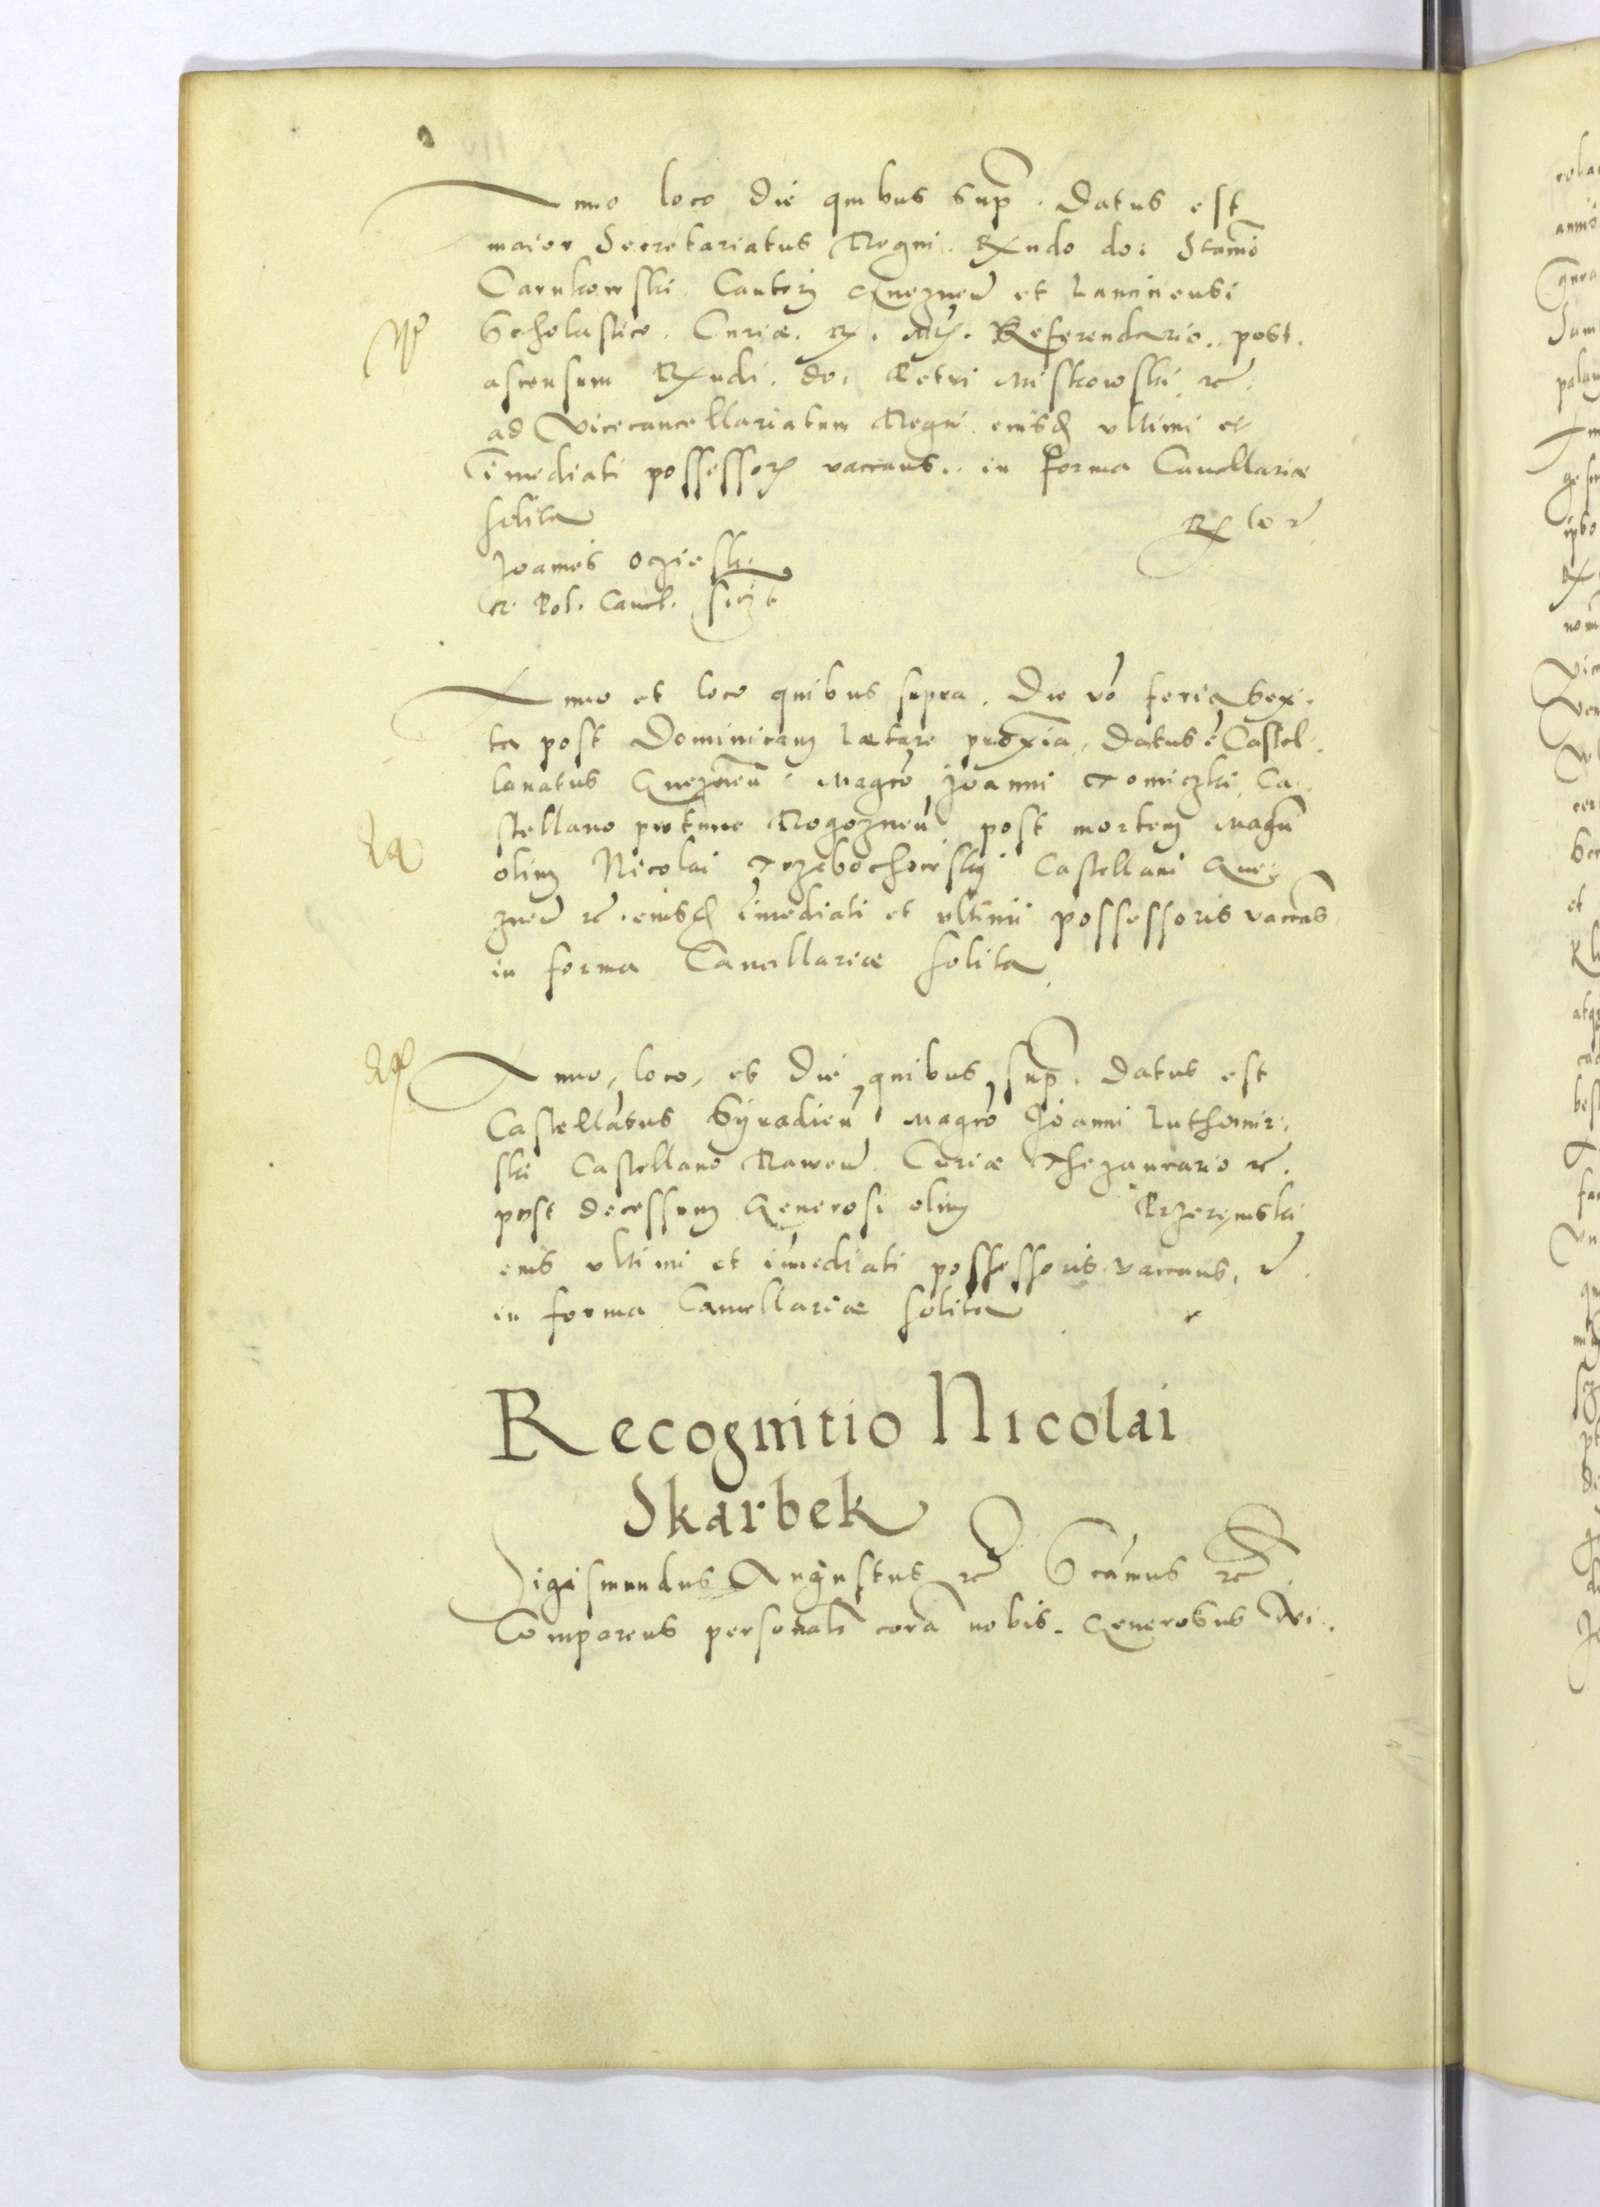 Anno loco die quibus sup. Datus est
maior Secretariatus Regni. Rndo do. Stanio
Carnkowski Cantori Gneznen et Lanciciensi
Scholastico. Curiæ. R. Mtis. Referendario. post.
ascensum Rndi. do. Petri Miskowski etc.
ad Vicecancellariatum Regni eiusd ultimi et
imediati possessoris vaccans. in forma Cancellariæ
solita
Joannes Oczieski
R. Pol. Cancel. sszt
Anno et loco quibus supra. Die vo feria Sex-
ta post Dominicam Lætare proxia, datus e Castel-
lanatus Gneznen Magco Joanni Tomiczki Ca-
stellano protunc Rogoznen post mortem Magci
olim Nicolai Trzebochowski Castellani Gne-
znen etc. eiusd imediati et ultimi possessoris vaccans
in forma Cancellariæ solita
Anno, loco, et die quibus sup. datus est
Castellatus Syradien Magco Joanni Luthomir-
ski Castellano Rawen Curiæ Thezaurario etc.
post decessum Generosi olim Przerzemski
eius ultimi et imediati possessoris vaccans, etc
in forma Cancellariæ solita
Recognitio Nicolai
Skarbek
Sigismundus Augustus etc Scamus etc
Comparens personali cora nobis. Generosus Ni-